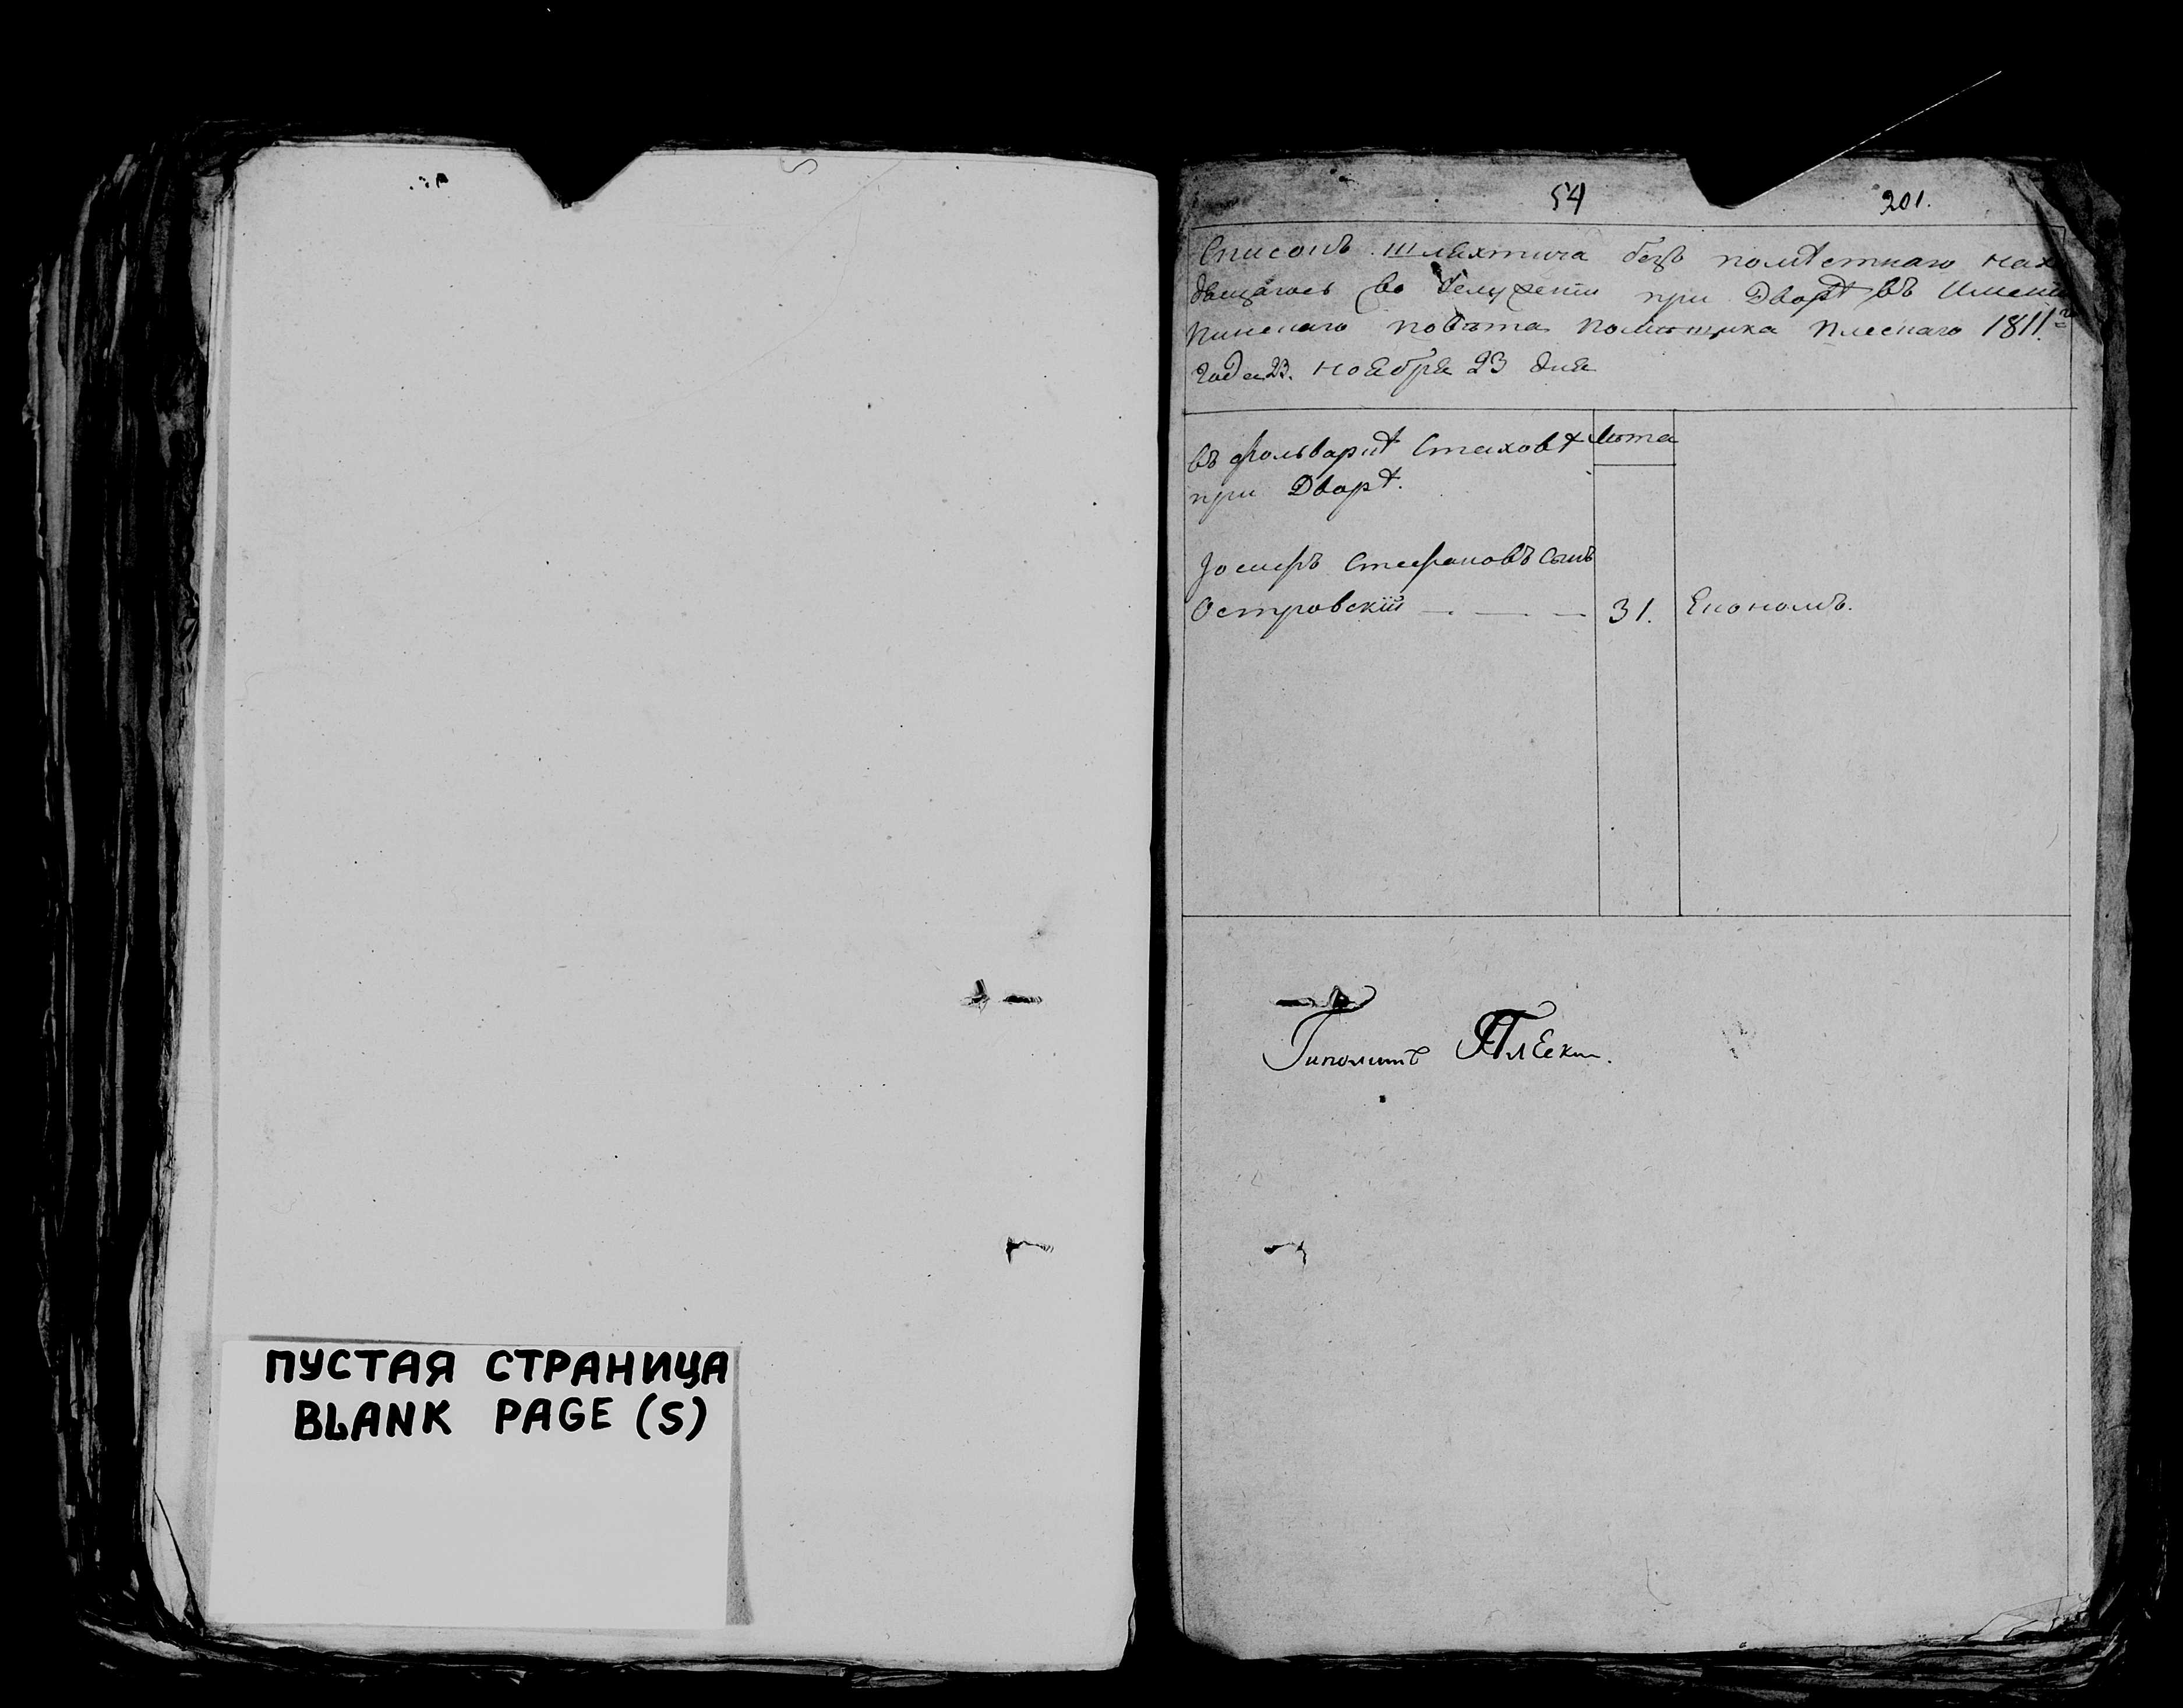 ПУСТАЯ СТРАНИЦА
BLANK PAGE (S)
54 201.
Списокъ шляхтича безъ помѣстнаго нах
дящагось во услуженіи при Дворѣ въ имени
Пинскаго повѣта помѣщика Плескаго 1811г.
года 23. ноября 23 дня
въ фольваркѣ Стаховѣ лѣта
при Дворѣ.
Іосифъ Стефановъ сынъ
Островскій — — — 31. Економъ.
Гиполитъ Плески.